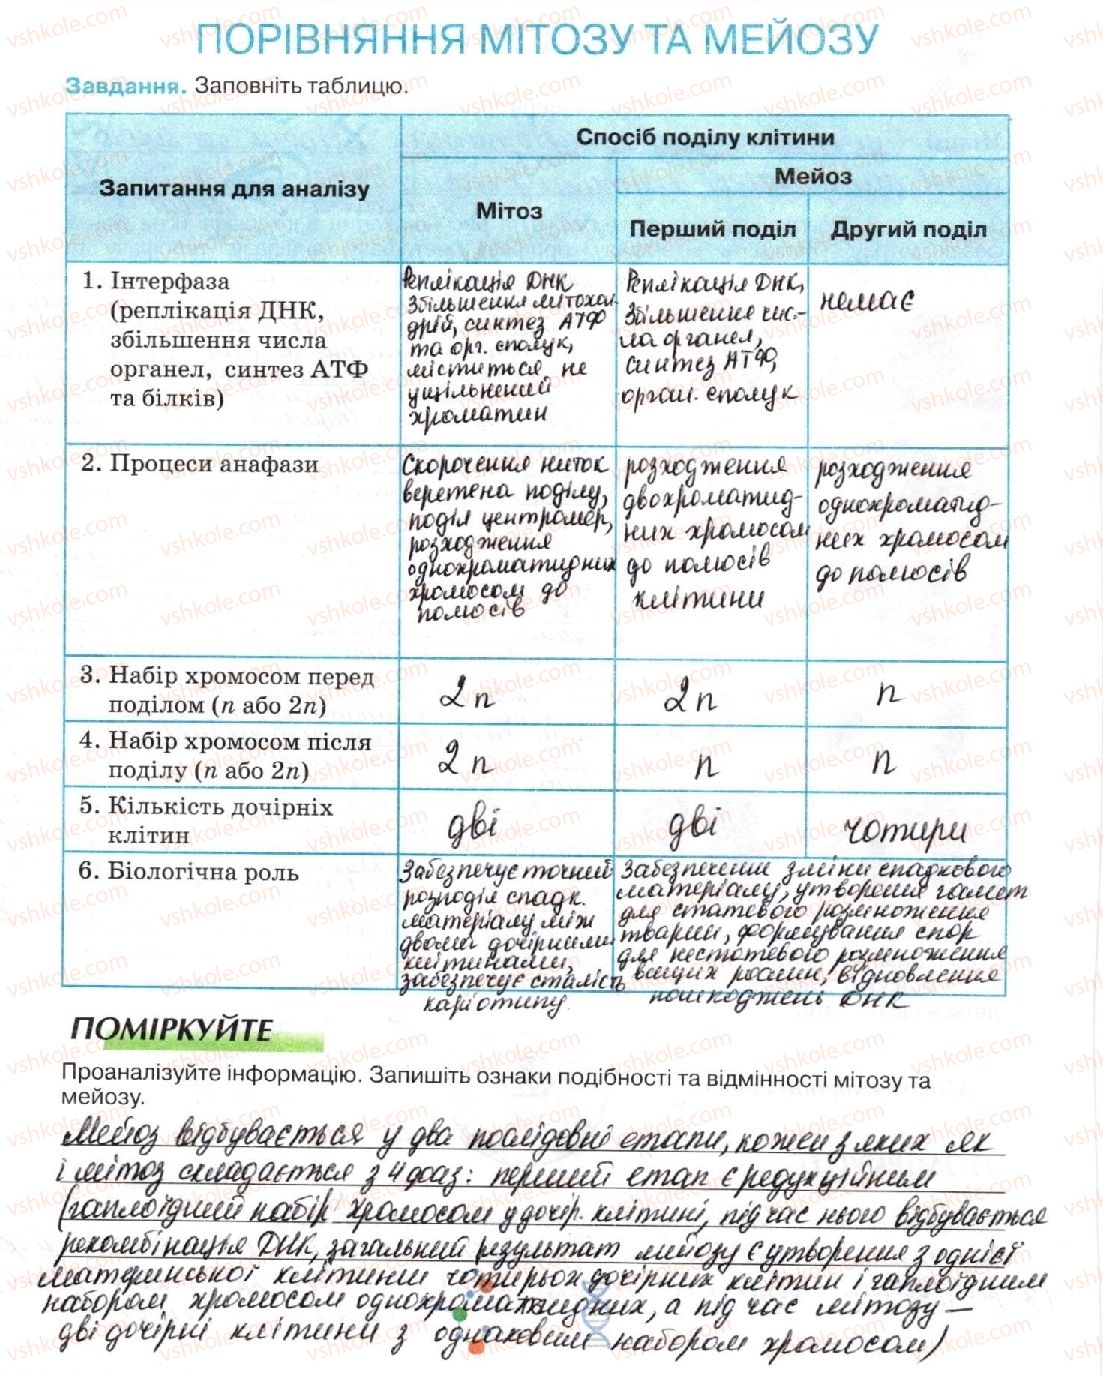 ПОРІВНЯННЯ МІТОЗУ ТА МЕЙОЗУ
Завдання. Заповніть таблицю.
Запитання для аналізу
Спосіб поділу клітини
Мітоз
Мейоз
Перший поділ
Другий поділ
1. Інтерфаза
(реплікація ДНК,
збільшення числа
органел, синтез АТФ
та білків)
Реплікація ДНК
Збільшення мітохон
дрій, синтез АТФ
та орг. сполук,
міститься не
ущільнений
хроматин
Реплікація ДНК,
Збільшення чис-
ла органел,
синтез АТФ,
орган. сполук
немає
2. Процеси анафази
Скорочення ниток
веретена поділу,
поділ центромер,
розходження
однохроматидних
хромосом до
полюсів
розходження
двохроматид-
них хромосом
до полюсів
клітини
розходження
однохроматид-
них хромосом
до полюсів
3. Набір хромосом перед
поділом (n або 2n)
2n
2n
n
4. Набір хромосом після
поділу (n або 2n)
2n
n
n
5. Кількість дочірніх
клітин
дві
дві
чотири
6. Біологічна роль
Забезпечує точний
розподіл спадк.
матеріалу між
двома дочірніми
клітинами,
забезпечує сталість
каріотипу.
Забезпечення зміни спадкового
матеріалу, утворення гамет
для статевого розмноження
тварин, формування спор
для нестатевого розмноження
вищих рослин, відновлення
пошкоджень ДНК
ПОМІРКУЙТЕ
Проаналізуйте інформацію. Запишіть ознаки подібності та відмінності мітозу та
мейозу.
Мейоз відбувається у два послідовні етапи, кожен з яких як
і мітоз складається з 4 фаз: перший етап є редукційним
(гаплоїдний набір хромосом у дочір. клітині, під час нього відбувається
рекомбінація ДНК, загальний результат мейозу є утворення з однієї
материнської клітини чотирьох дочірних клітин і гаплоїдним
набором хромосом однохроматидних, а під час мітозу —
дві дочірні клітини з однаковим набором хромосом)
vshkole.com